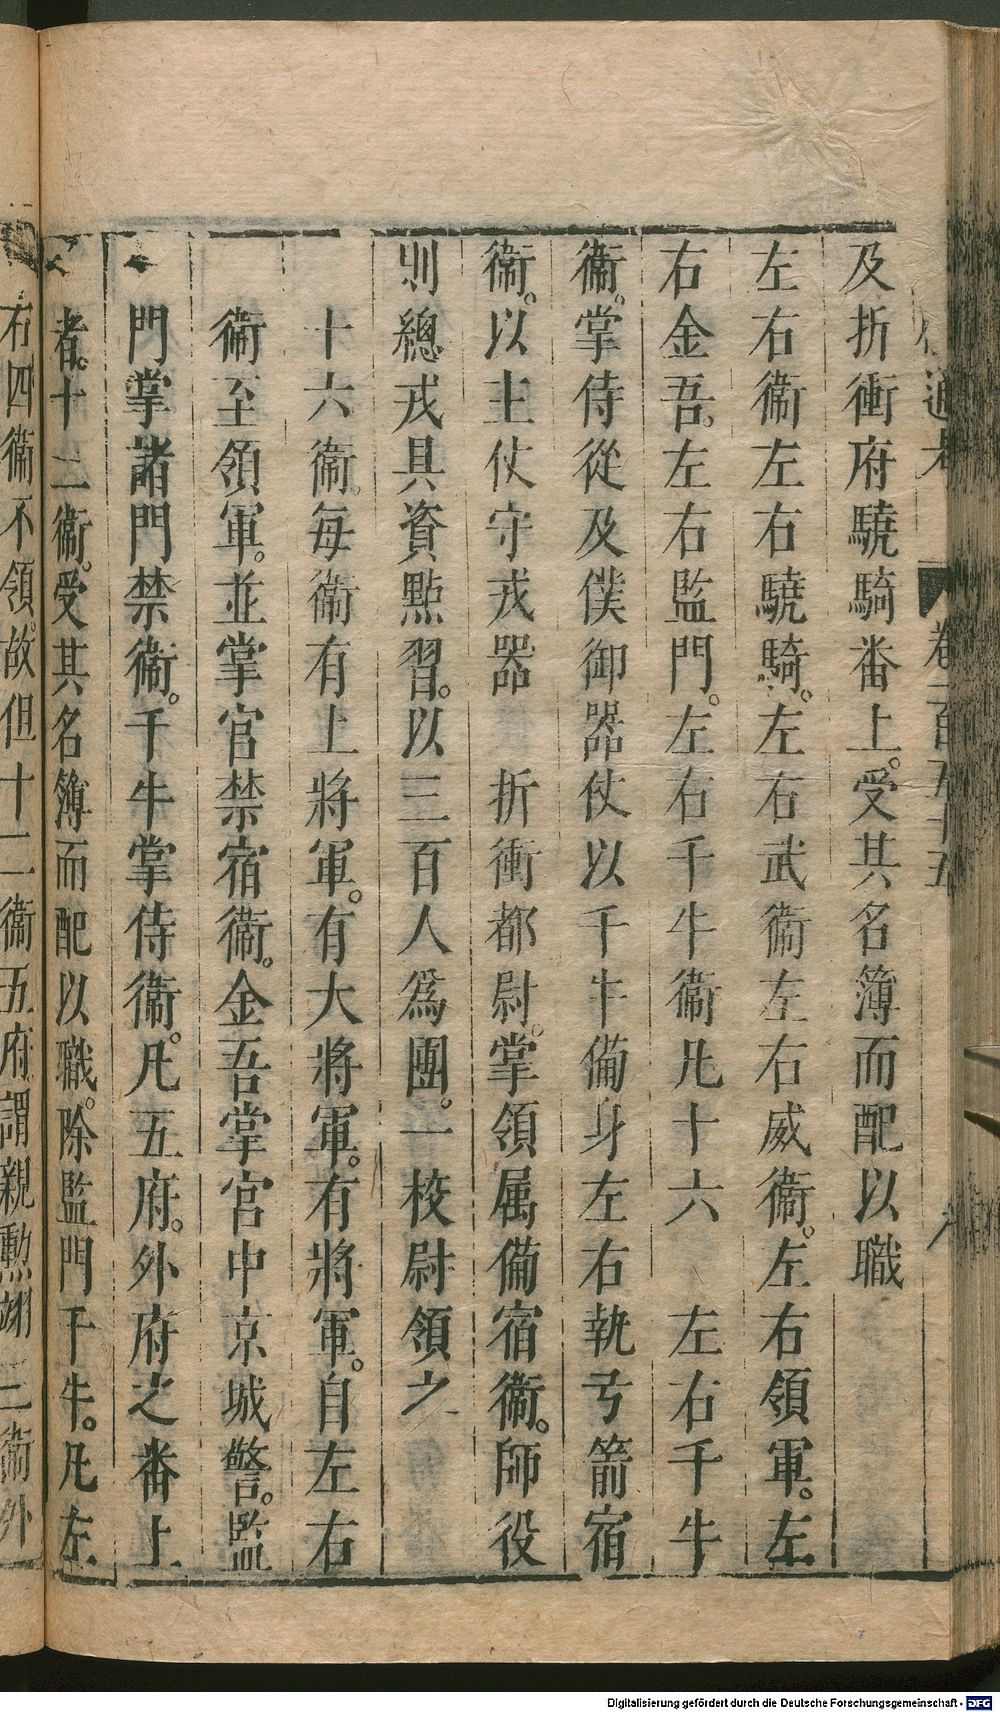 及折衝府驍騎番上。受其名簿而配以職
左右衞左右驍騎。左右武衞左右威衞。左右領軍。左
右金吾。左右監門。左右千牛衞凡十六　左右千牛
衞。掌侍從及僕御器仗以千牛備身左右執弓箭宿
衞。以主仗守戎器　折衝都尉。掌領属備宿衞。師役
則總戎具資點習。以三百人爲團。一校尉領之
十六衞。每衞有上將軍。有大將軍。有將軍。自左右
衞至領軍。並掌官禁宿衞。金吾掌宮中京城警。監
門掌諸門禁衞。千牛掌侍衞。凡五府。外府之番上
者。十二衞。受其名簿而配以職。除監門千牛。凡左
右四衞不領。故但十二衞五府謂親勲翊三衞外
卷一百五十五
Digitalisierung gefördert durch die Deutsche Forschungsgemeinschaft - DFG